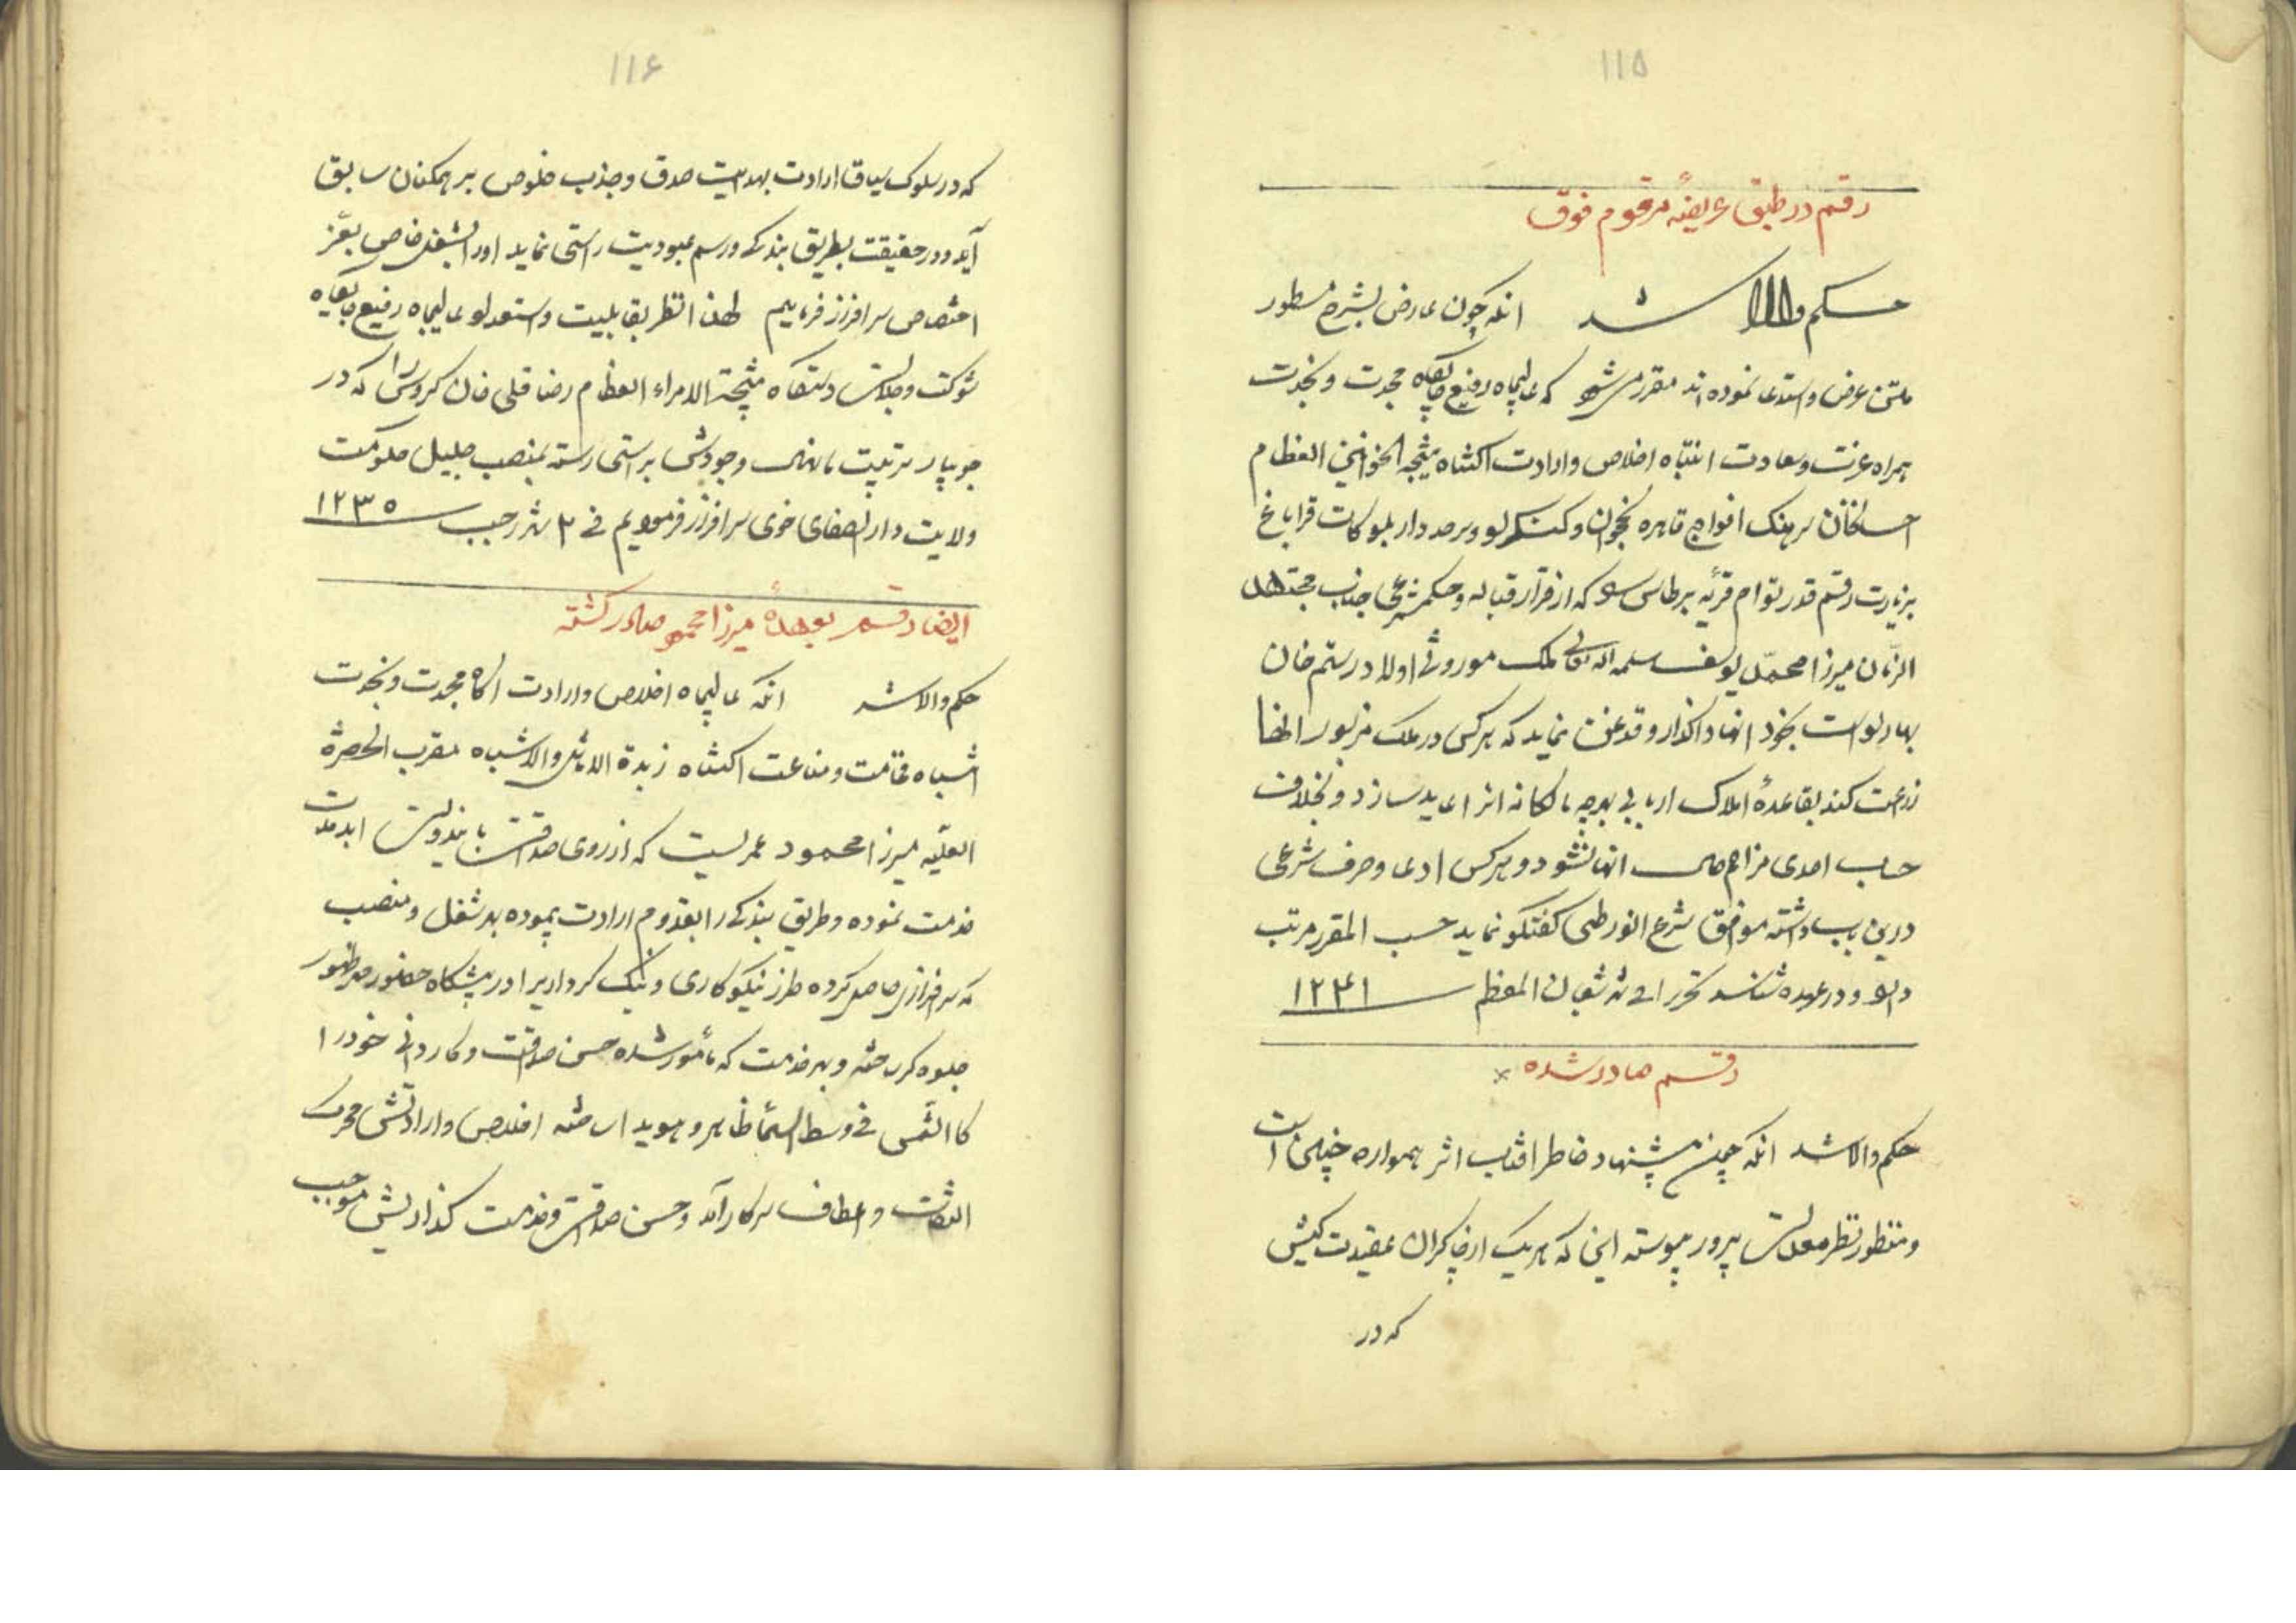 ۱۱۵
رقم در طبق عریضه مرقوم فوق
حکم والا شد آنکه چون عارض بشرح مسطور
متن عرض و استدعا نموده‌اند مقرر میشود که عالیجاه رفیع جایگاه مجدت و نجدت
همراه عزت و سعادت انتباه اخلاص و ارادت اکتناه نتیجه الخوانین العظام
احسانخان سرهنک افواج قاهره نخجوان و کنکرلو و سرحددار بلوکات قراباغ
بزیارت رقم قدر توام قریه برطاس را که از قرار قباله و حکم شرعی جناب مجتهد
الزمان میرزا محمد یوسف سلمه الله تعالی ملک موروثی اولاد رستم خان
بهادلو است بخود آنها واکذار و قدغن نماید که هرکس در ملک مزبور
زراعت کند بقاعدهٔ املاک اربابی بهرچه مالکانه آنرا عاید سازد و بخلاف
حساب احدی مزاحم حال آنها نشود و هرکس ادعا و حرف شرعی
درین باب داشته موافق شرع انور طی کفتکو نماید حسب المقرر مرتب
داند و در عهده شناسد تحریرا فی شهر شعبان المعظم ۱۲۴۱
رقم صادر شده
حکم والا شد آنکه چون پیشنهاد خاطر آفتاب اثر همواره چنین است
و منظور نظر معدلت پرور پیوسته این که هر یک از چاکران عقیدت کیش
که در
۱۱۶
که در سلوک سیاق ارادت بهدایت صدق و جذب خلوص بر همکنان سابق
آید و در حقیقت بطریق بندکی و رسم عبودیت راستی نماید او را بشغل خاص بعز
اختصاص سرافراز فرماییم لهذا نظر بقابلیت و استعداد عالیجاه رفیع جایکاه
شوکت و جلالت دستکاه نتیجة الامراء العظام رضا قلی خان کروسی را که در
جویبار تربیت ما نهال وجودش براستی رسته بمنصب جلیل حکومت
ولایت دار الصفای خوی سرافراز فرمودیم فی ۳ شهر رجب ۱۲۳۵
ایضا رقم بعهدهٔ میرزا محمود صادر کشته
حکم والا شد آنکه عالیجاه اخلاص و ارادت آکاه مجدت و نجدت
اشباه فخامت و مناعت اکتناه زبدة الاماثل والاشباه مقرب الحضرة
العلیه میرزا محمود عمریست که از روی صداقت باین دولت ابد مدت
خدمت نموده و طریق بندکی را بقدوم ارادت پیموده بهر شغل و منصب
که سرافرازی حاصل کرده طرز نیکوکاری و نیک کرداریرا در پیشکاه حضور مهر ظهور
جلوه کر ساخته و بهر خدمت که مأمور شده حسن صداقت و کاردانی خود را
کالشمس فی وسط السماء ظاهر و هویدا ساخته اخلاص و ارادتش محرک
التفات و اعطاف سرکار آمد و حسن صداقت و خدمت کذاریش موجب